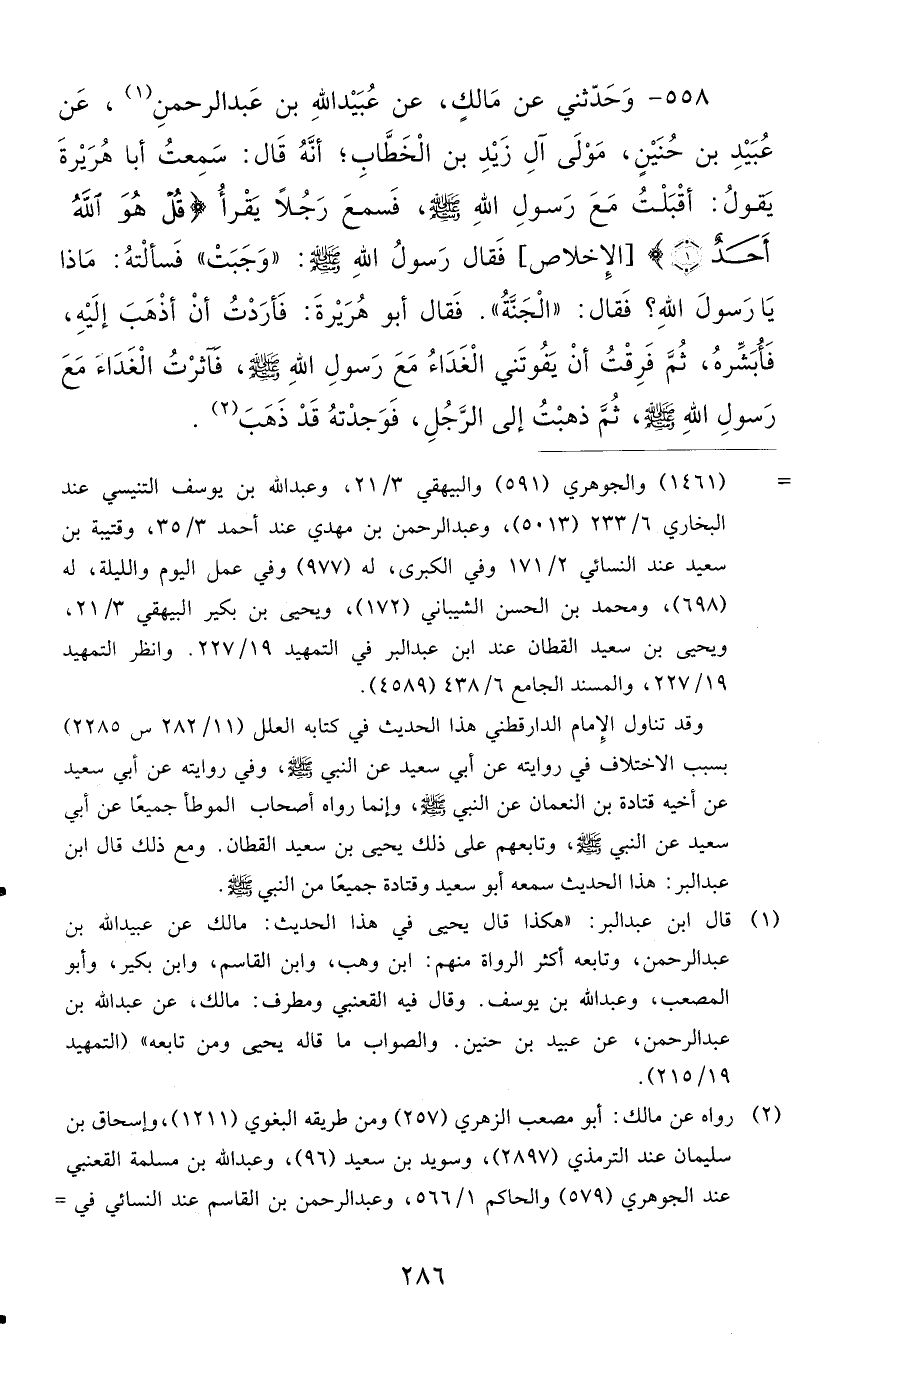 ٥٥٨- وَحَدّثني عن مَالكٍ، عن عُبَيْداللهِ بن عَبدالرحمنِ(١) ، عَن
عُبَيْدِ بن حُنَيْنٍ، مَوْلَى آلِ زَيْدِ بن الْخَطَّابِ؛ أنَّهُ قَال: سَمِعتُ أبا هُرَيْرةَ
يَقولُ: أقْبَلْتُ مَعَ رَسولِ اللهِ ﷺ، فَسمعَ رَجُلاً يَقْرأُ ﴿قُلْ هُوَ ٱللَّهُ
أَحَدٌ ۝١﴾ [الإخلاص] فَقال رَسولُ اللهِ ﷺ: «وَجَبَتْ» فَسألْتهُ: مَاذا
يَا رَسولَ اللهِ؟ فَقال: «الْجَنَّةُ». فَقال أبو هُرَيْرةَ: فَأرَدْتُ أنْ أذْهَبَ إلَيْهِ،
فَأُبَشِّرهُ، ثُمَّ فَرِقْتُ أنْ يَفُوتَني الْغَدَاءُ مَعَ رَسولِ اللهِ ﷺ، فَآثرْتُ الْغَدَاءَ مَعَ
رَسولِ اللهِ ﷺ، ثُمَّ ذهبْتُ إلى الرَّجُلِ، فَوَجدْتهُ قَدْ ذَهَبَ(٢) .
= (١٤٦١) والجوهري (٥٩١) والبيهقي ٢١/٣، وعبدالله بن يوسف التنيسي عند
البخاري ٢٣٣/٦ (٥٠١٣)، وعبدالرحمن بن مهدي عند أحمد ٣٥/٣، وقتيبة بن
سعيد عند النسائي ١٧١/٢ وفي الكبرى، له (٩٧٧) وفي عمل اليوم والليلة، له
(٦٩٨)، ومحمد بن الحسن الشيباني (١٧٢)، ويحيى بن بكير البيهقي ٢١/٣،
ويحيى بن سعيد القطان عند ابن عبدالبر في التمهيد ٢٢٧/١٩. وانظر التمهيد
٢٢٧/١٩، والمسند الجامع ٤٣٨/٦ (٤٥٨٩).
وقد تناول الإمام الدارقطني هذا الحديث في كتابه العلل (٢٨٢/١١ س ٢٢٨٥)
بسبب الاختلاف في روايته عن أبي سعيد عن النبي ﷺ، وفي روايته عن أبي سعيد
عن أخيه قتادة بن النعمان عن النبي ﷺ، وإنما رواه أصحاب الموطأ جميعًا عن أبي
سعيد عن النبي ﷺ، وتابعهم على ذلك يحيى بن سعيد القطان. ومع ذلك قال ابن
عبدالبر: هذا الحديث سمعه أبو سعيد وقتادة جميعًا من النبي ﷺ.
(١) قال ابن عبدالبر: «هكذا قال يحيى في هذا الحديث: مالك عن عبيدالله بن
عبدالرحمن، وتابعه أكثر الرواة منهم: ابن وهب، وابن القاسم، وابن بكير، وأبو
المصعب، وعبدالله بن يوسف. وقال فيه القعنبي ومطرف: مالك، عن عبدالله بن
عبدالرحمن، عن عبيد بن حنين. والصواب ما قاله يحيى ومن تابعه» (التمهيد
٢١٥/١٩).
(٢) رواه عن مالك: أبو مصعب الزهري (٢٥٧) ومن طريقه البغوي (١٢١١)، وإسحاق بن
سليمان عند الترمذي (٢٨٩٧)، وسويد بن سعيد (٩٦)، وعبدالله بن مسلمة القعنبي
عند الجوهري (٥٧٩) والحاكم ٥٦٦/١، وعبدالرحمن بن القاسم عند النسائي في =
٢٨٦